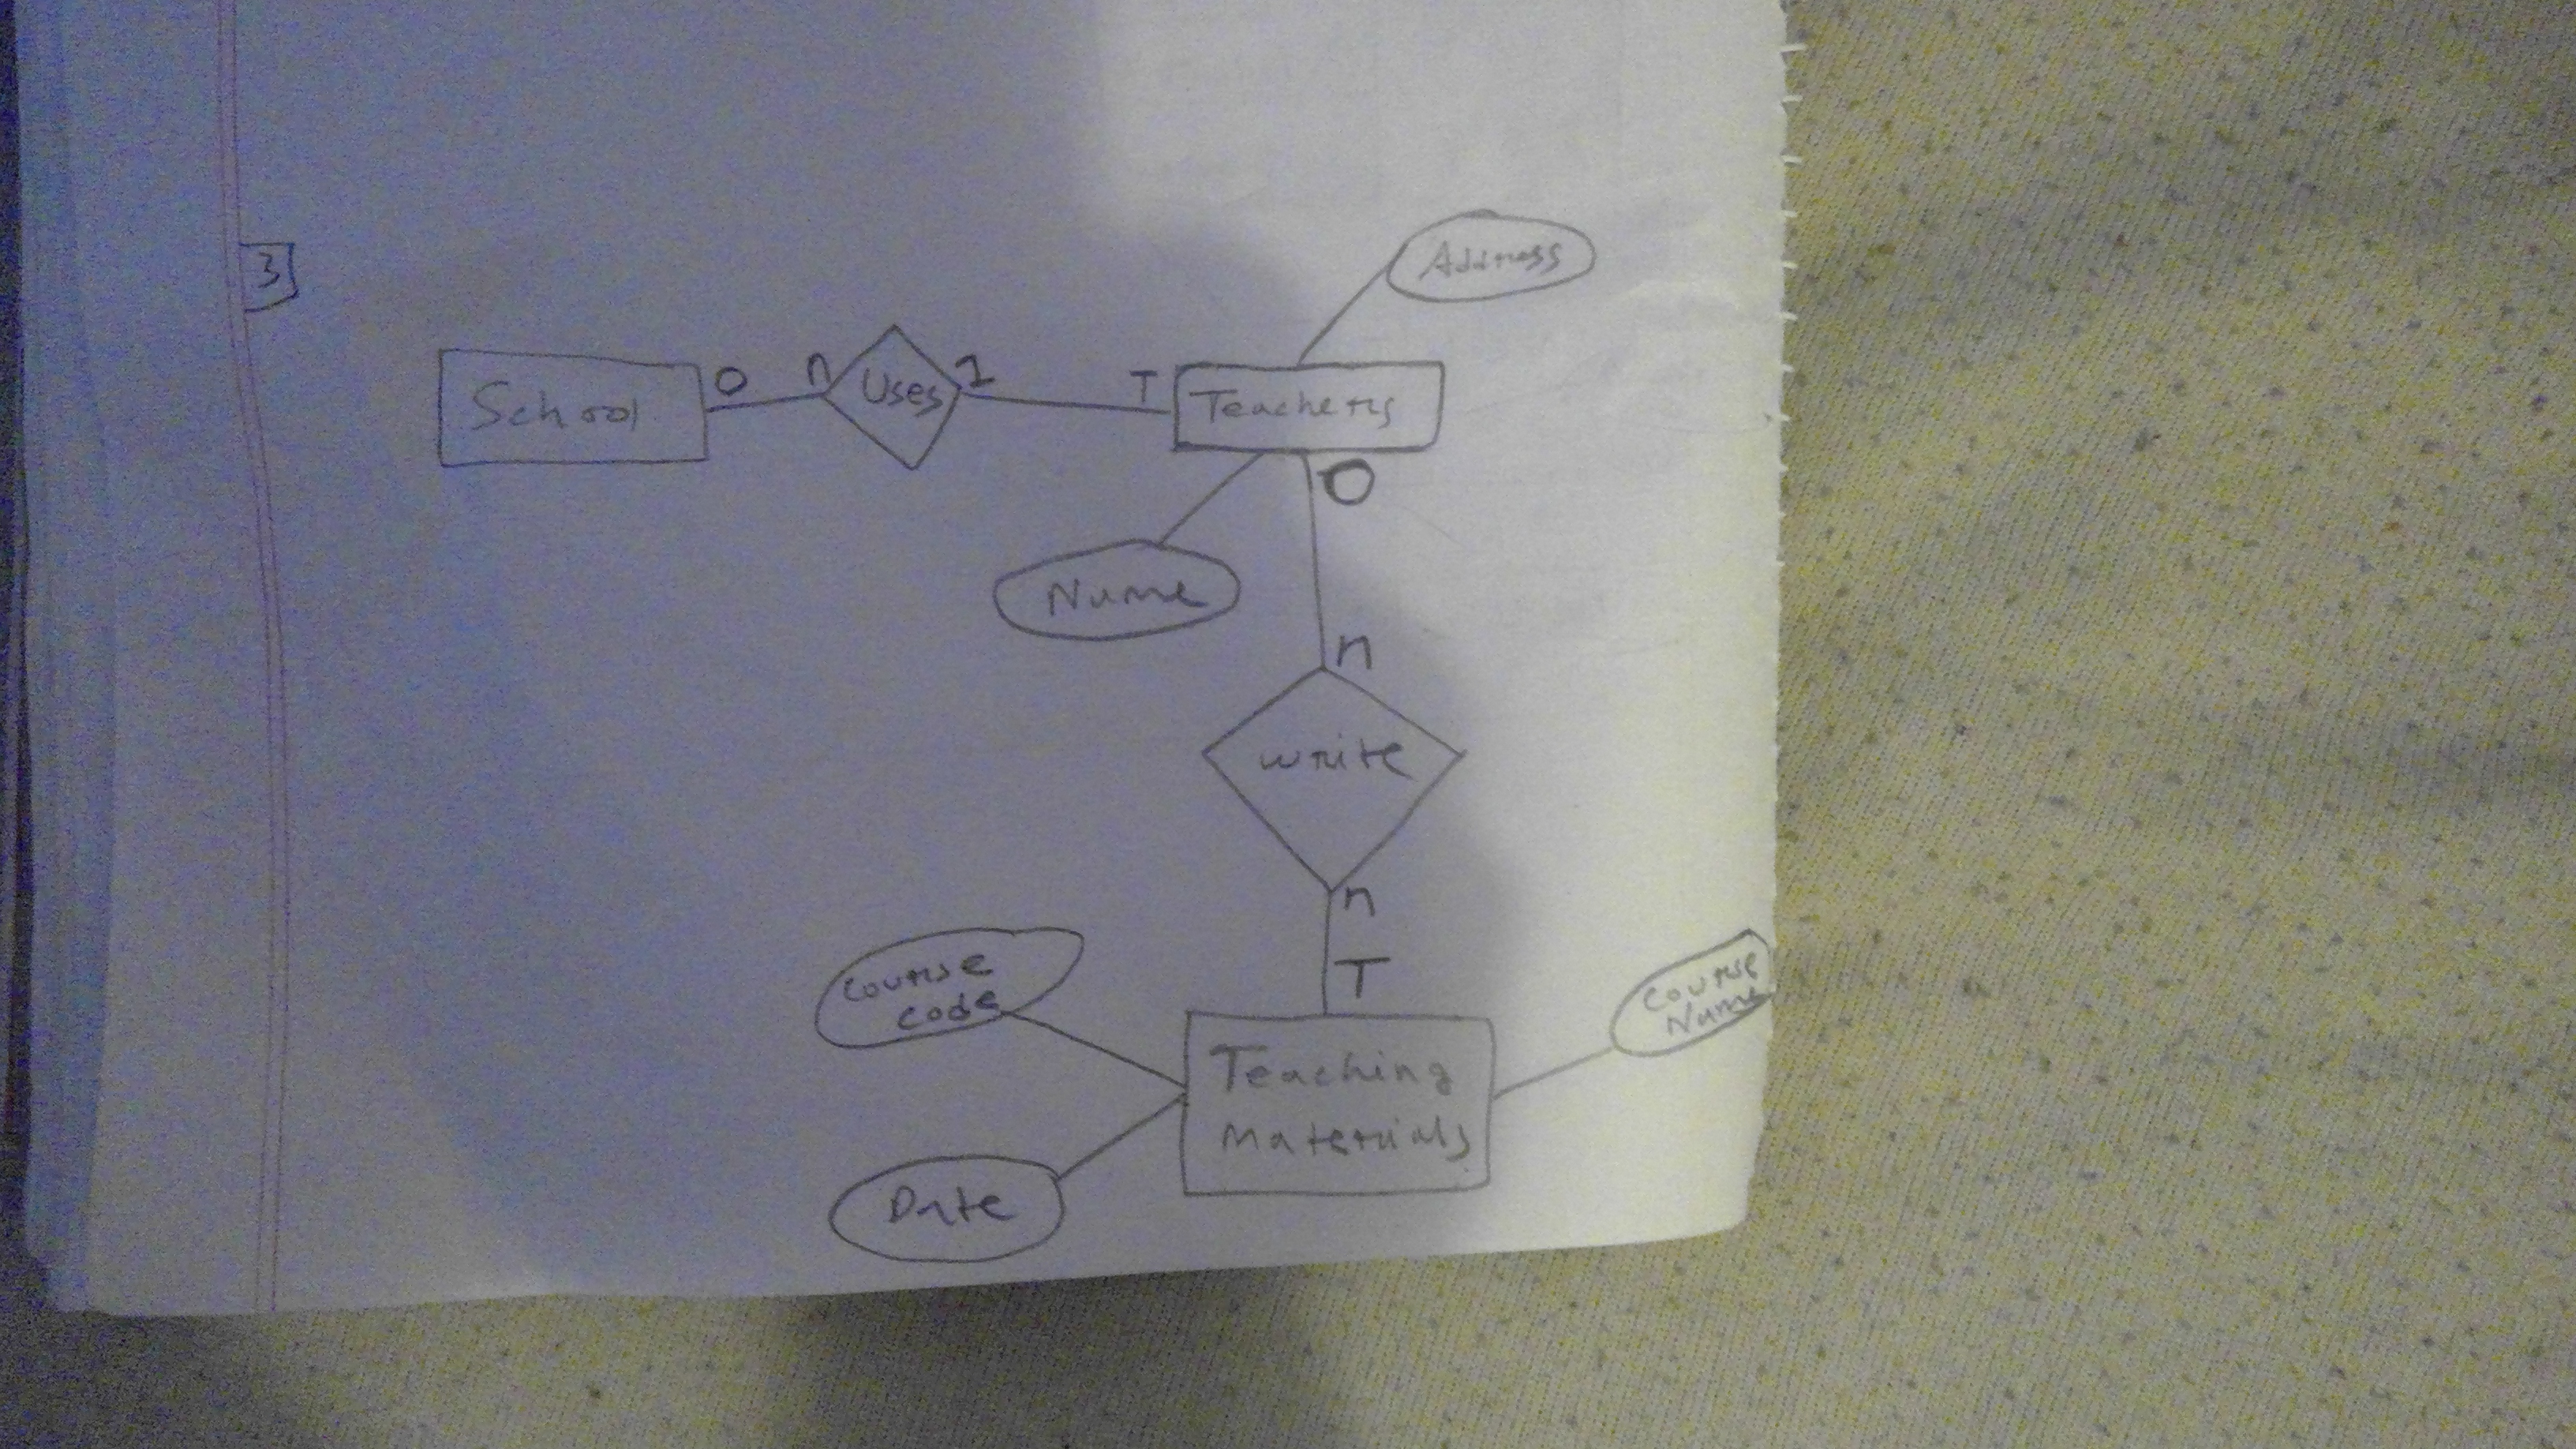 3
Address
School
O
n
Uses
1
T
Teachers
O
Name
n
write
n
T
Course
Code
Course
Name
Teaching
Materials
Date